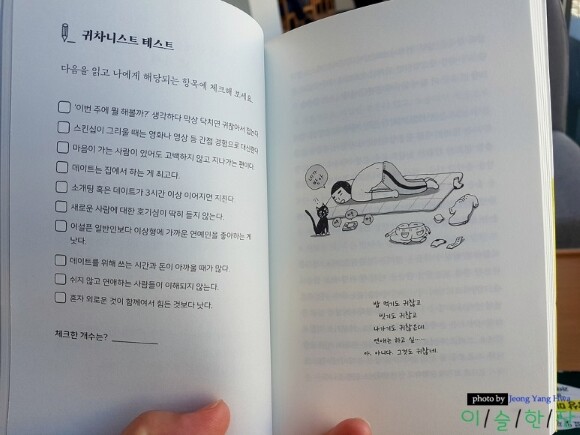 귀차니스트 테스트
다음을 읽고 나에게 해당되는 항목에 체크해 보세요.
'이번 주에 뭘 해볼까?' 생각하다 막상 닥치면 귀찮아서 접는다.
스킨십이 그리울 때는 영화나 영상 등 간접 경험으로 대신한다.
마음이 가는 사람이 있어도 고백하지 않고 지나가는 편이다.
데이트는 집에서 하는 게 최고다.
소개팅 혹은 데이트가 3시간 이상 이어지면 지친다.
새로운 사람에 대한 호기심이 딱히 들지 않는다.
어설픈 일반인보다 이상형에 가까운 연예인을 좋아하는 게
낫다.
데이트를 위해 쓰는 시간과 돈이 아까울 때가 많다.
쉬지 않고 연애하는 사람들이 이해되지 않는다.
혼자 외로운 것이 함께여서 힘든 것보다 낫다.
체크한 개수는?
밥 먹기도 귀찮고
씻기도 귀찮고
나가기도 귀찮은데
연애는 하고 싶......
아. 아니다. 그것도 귀찮네!
photo by Jeong Yang Hwa
이/슬/한/잔